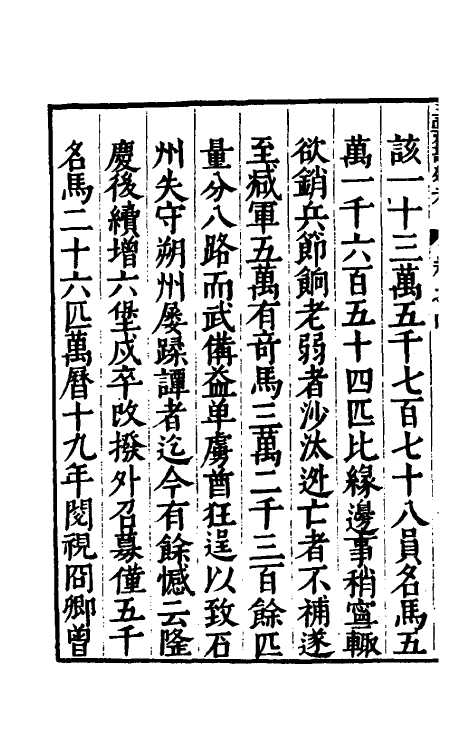 該一十三萬五千七百七十八員名馬五
萬一千六百五十四匹比緣邊事稍寧輙
欲銷兵節餉老弱者沙汰迯亡者不補遂
至减軍五萬有竒馬三萬二千三百餘匹
量分八路而武備益单虜酋狂逞以致石
州失守朔州屡蹂譚者迄今有餘憾云隆
慶後續增六堡戍卒改撥外召募僅五千
名馬二十六匹萬曆十九年閱視冏卿曾